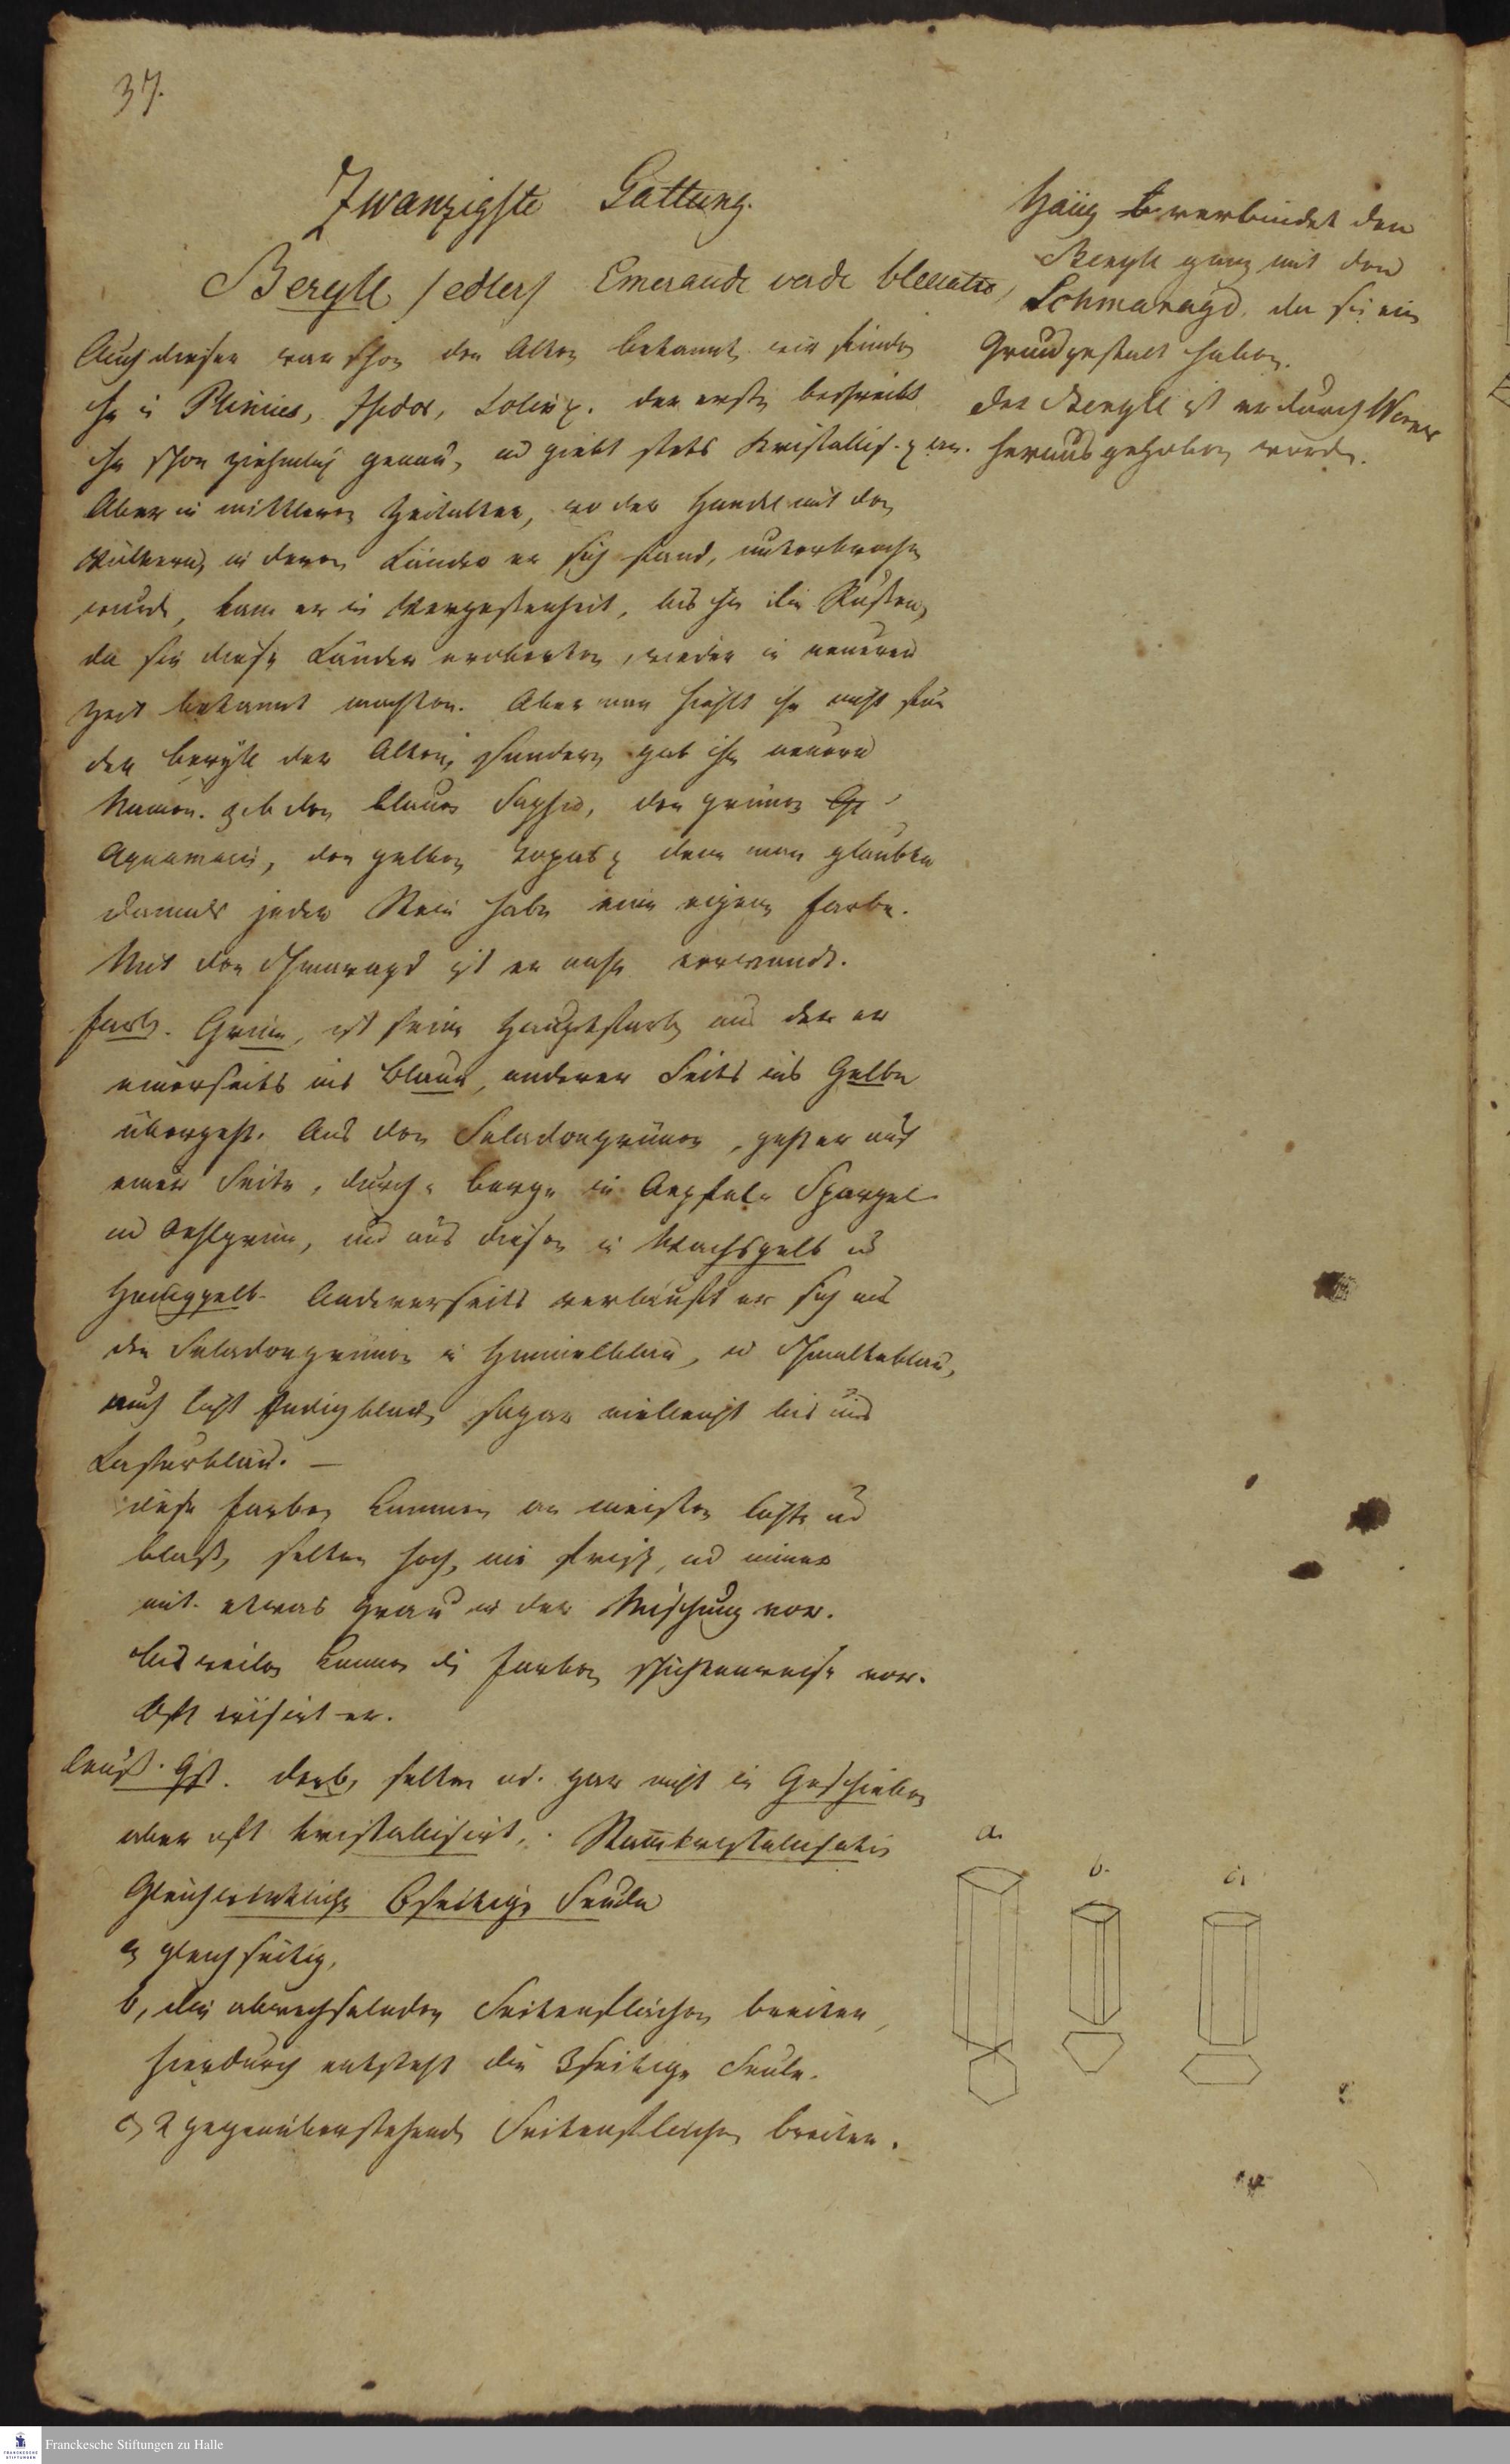 37.
Zwanzigste Gattung.
Beryll /edler/ Emeraude verde bleuatre,
Auch dieser war schon den Alten bekannt, wir finden
ihn in Plinius, Isidor, Solin . der erste beschreibt
ihn schon ziehmlich genau, und giebt stets Kristallis. an.
Aber in mittleren Zeitalter, wo der Handel mit den
Völkern, in deren Länder er sich fand, unterbrochen
wurde, kam er in Vergessenheit, bis ihn die Russen,
da sie diese Länder eroberten, wieder in neuerer
Zeit bekannt machten. Aber man hielt ihn nicht für
den Beryll der Alten, sondern gab ihm neuere
Namen. z.b den blauen Saphir, den grünen
Aquamarin, den gelben Topas denn man glaubte
damals jeder Stein habe eine eigene Farbe.
Mit den Schmaragd ist er nahe verwandt.
Farb. Grün, ist seine Hauptfarbe aus der er
einerseits ins Blaue, anderer Seits ins Gelbe
übergeht. Aus den Seladongrünen, geht er auf
einer Seite, durch Berg- in Aepfel- Spargel-
und Oehlgrün, und aus diesen in Wachsgelb und
Honiggelb. Andererseits verläuft er sich aus
den Seladongrünen in Himmelblau, und Schmalteblau,
auch licht Indigblau, sogar vielleicht bis ins
Lasurblau. —
diese Farben kommen am meisten lichte und
blaß, selten hoch, nie frisch, und immer
mit etwas Grau in der Mischung vor.
bisweilen kommen die Farben schichtenweise vor.
Oft irisirt er.
Aeuß. Gst. derb, selten od. gar nicht in Geschieben
aber oft kristallisirt, . Stamkristallisation
Gleichwinkliche 6seitige Seule
a, gleichseitig,
b, die abwechselnden Seitenflächen breiter,
hierdurch entsteht die 3seitige Seule.
c, 2 gegenüberstehende Seitenflächen breiter.
Haüy verbindet den
Beryll ganz mit den
Schmaragd, da sie ein
Grundgestalt haben.
Der Beryll ist erst durch Werner
herausgehoben worden.
a.
b.
c.
Franckesche Stiftungen zu Halle